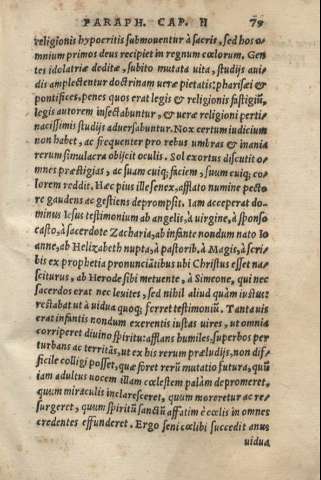 PARAPH. CAP. II 79
religionis hypocritis submouentur à sacris, sed hos o-
mnium primos deus recipiet in regnum cœlorum. Gen
tes idolatriæ deditæ, subito mutata uita, studijs aui-
dis amplectentur doctrinam ueræ pietatis: pharisæi &
pontifices, penes quos erat legis & religionis fastigiũ,
legis autorem insectabuntur, & ueræ religioni perti-
nacissimis studijs aduersabuntur. Nox certum iudicium
non habet, ac frequenter pro rebus umbras & inania
rerum simulacra obijcit oculis. Sol exortus discutit o-
mnes præstigias, ac suam cuiq; faciem, suum cuiq; co-
lorem reddit. Hæc pius ille senex, afflato numine pecto
re gaudens ac gestiens deprompsit. Iam acceperat do-
minus Iesus testimonium ab angelis, à uirgine, à sponso
casto, à sacerdote Zacharia, ab infante nondum nato Io
anne, ab Helizabeth nupta, à pastorib. à Magis, à scri-
bis ex prophetia pronunciãtibus ubi Christus esset na-
sciturus, ab Herode sibi metuente, à Simeone, qui nec
sacerdos erat nec leuites, sed nihil aliud quàm iustus:
restabat ut à uidua quoq; ferret testimoniũ. Tanta uis
erat infantis nondum exerentis iustas uires, ut omnia
corriperet diuino spiritu: afflans humiles: superbos per
turbans ac territãs, ut ex his rerum præludijs, non dif-
ficile colligi posset, quæ foret rerũ mutatio futura, quũ
iam adultus uocem illam cœlestem palàm depromeret,
quum miraculis inclaresceret, quum moreretur ac re-
surgeret, quum spiritũ sanctũ affatim è cœlis in omnes
credentes effunderet. Ergo seni cœlibi succedit anus
uidua